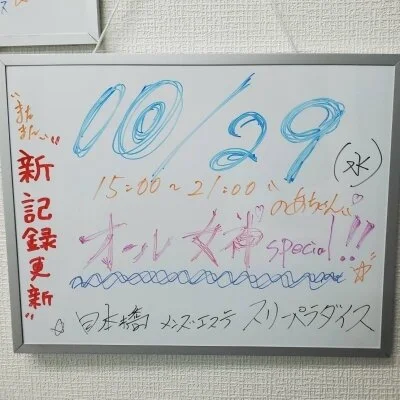 10/29
(水)
"またまた"
"新記録更新"
15:00～21:00
のあちゃん
オール女神special!!
日本橋 メンズエステ スリーパラダイス